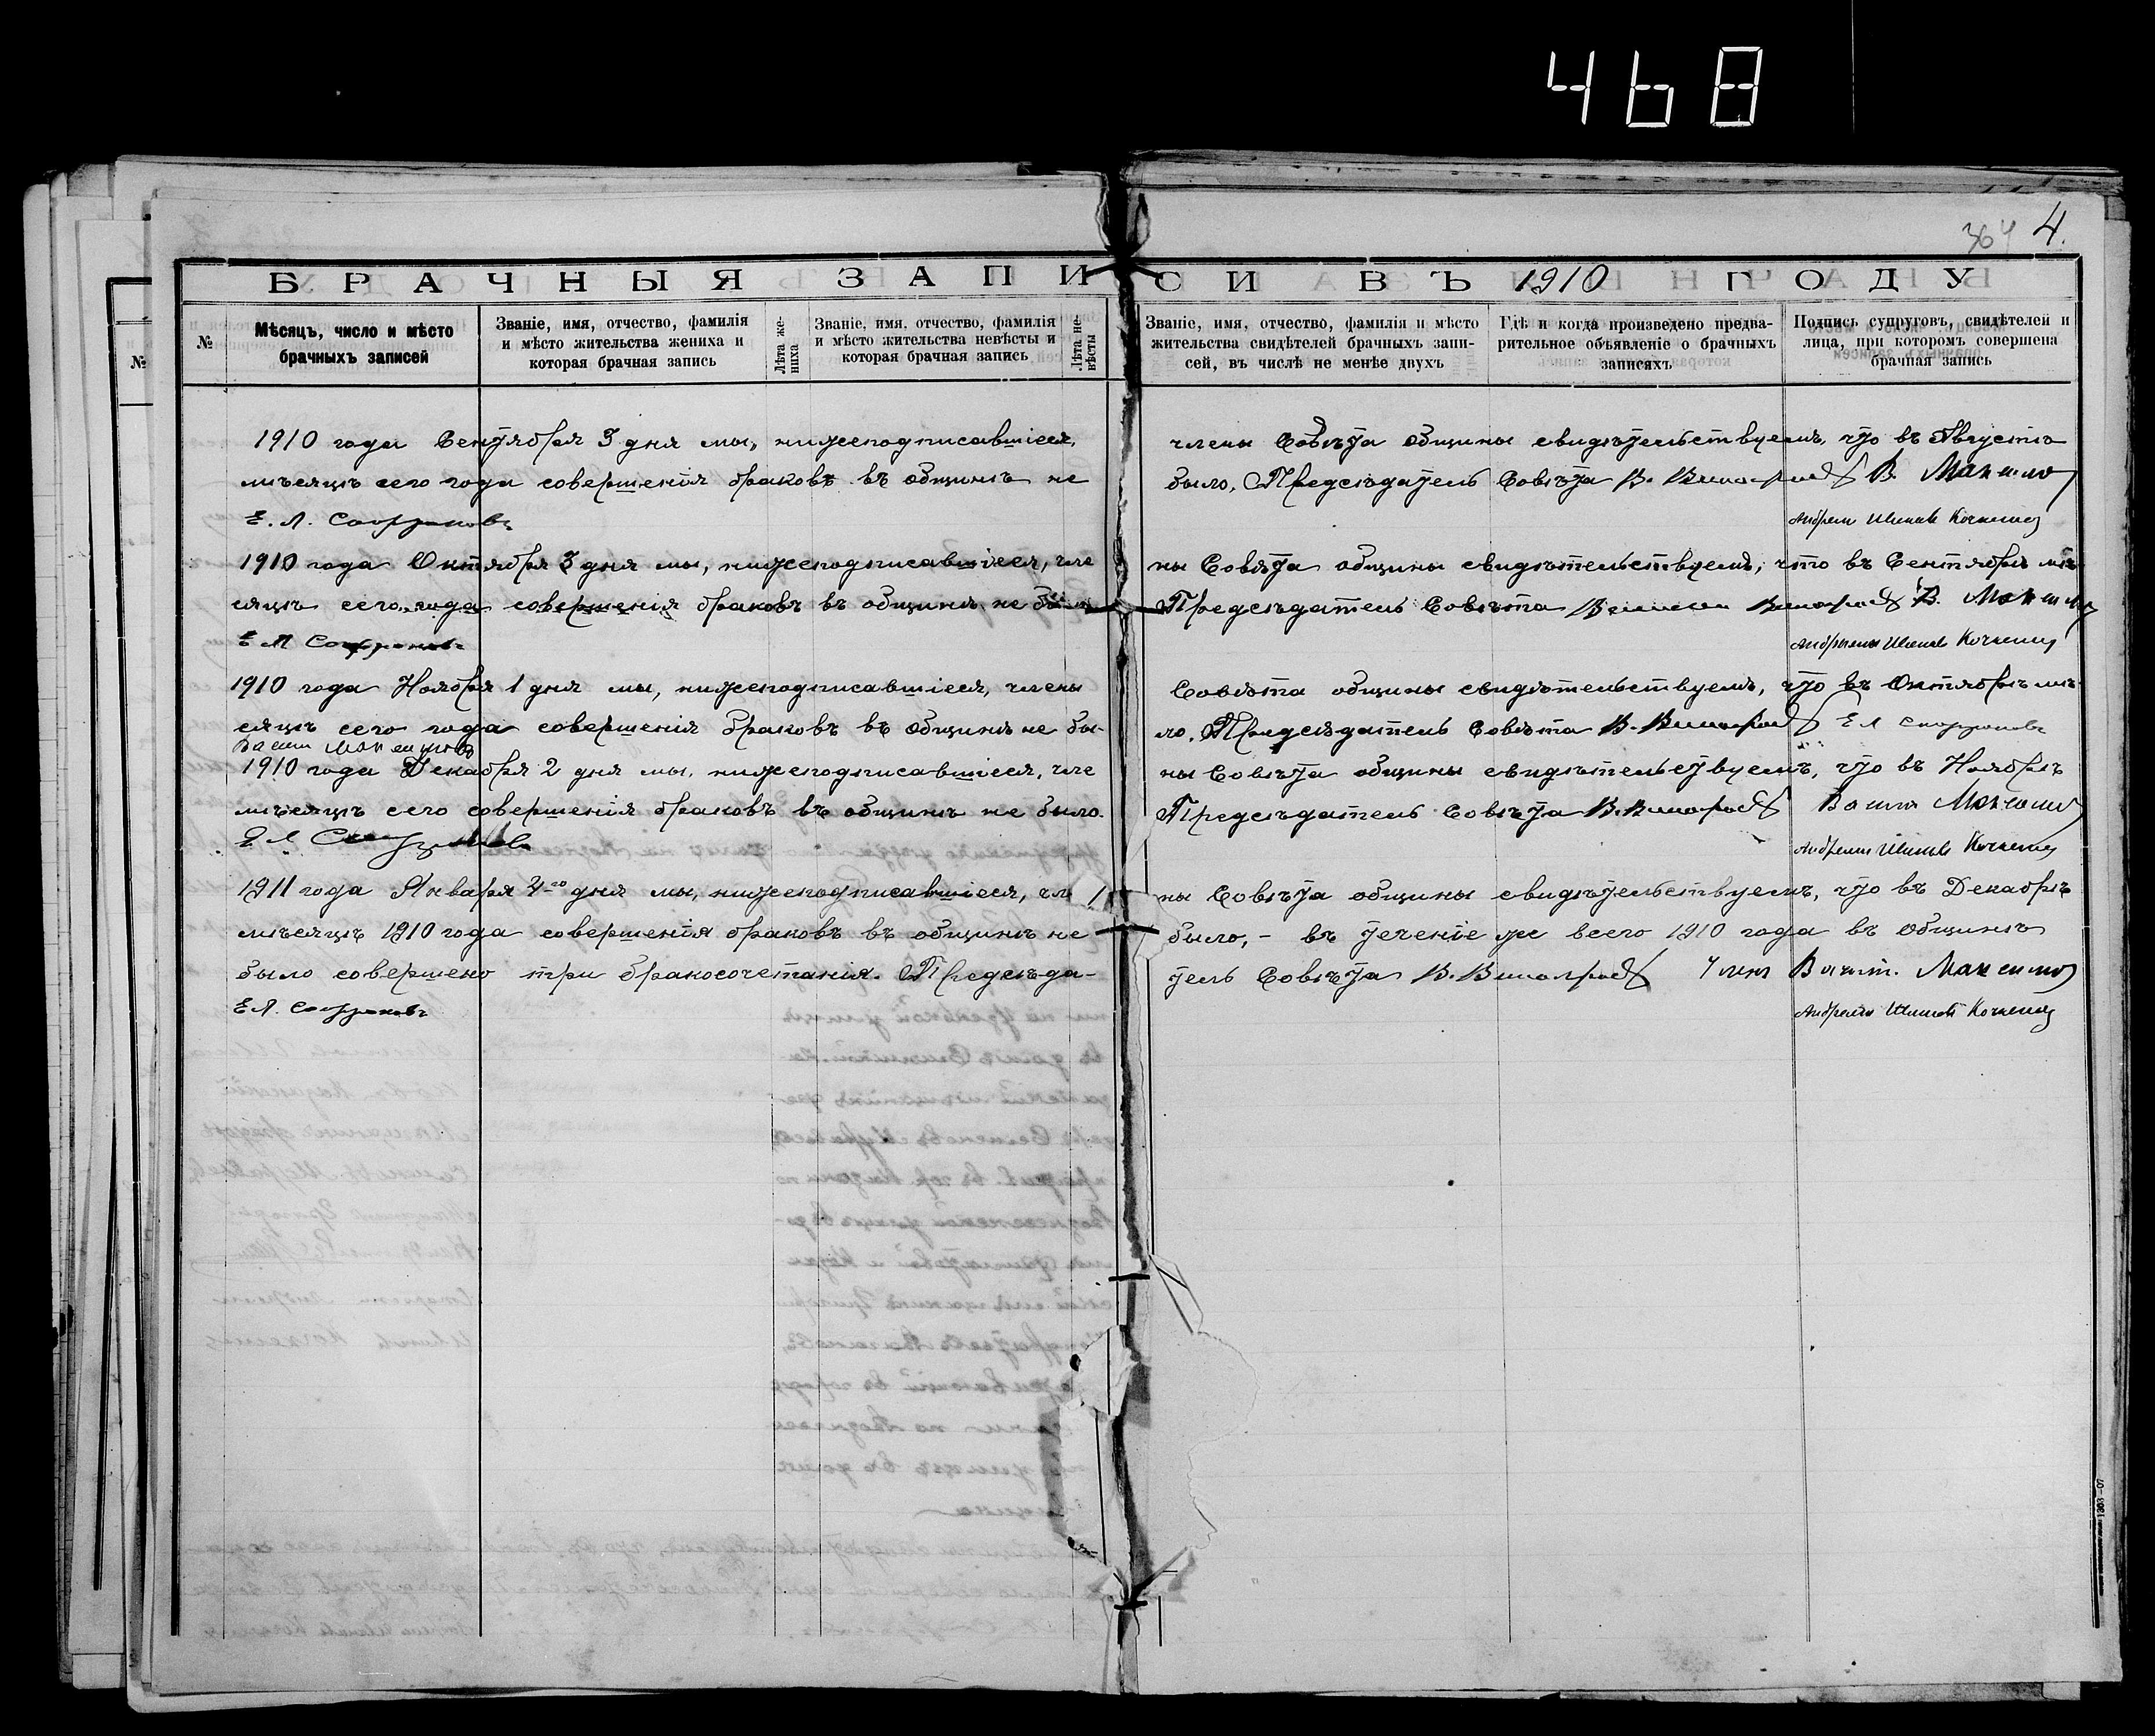 468
364 4.
БРАЧНЫЯ ЗАПИСИ ВЪ 1910 ГОДУ
№
№
Мѣсяцъ, число и мѣсто
брачныхъ записей
Званіе, имя, отчество, фамилія
и мѣсто жительства жениха и
которая брачная запись
Лѣта же-
ниха
Званіе, имя, отчество, фамилія
и мѣсто жительства невѣсты и
которая брачная запись
Лѣта не-
вѣсты
Званіе, имя, отчество, фамилія и мѣсто
жительства свидѣтелей брачныхъ запи-
сей, въ числѣ не менѣе двухъ
Гдѣ и когда произведено предва-
рительное объявленіе о брачныхъ
записяхъ
Подпись супруговъ, свидѣтелей и
лица, при которомъ совершена
брачная запись
1910 года Сентября 3 дня мы, нижеподписавшіеся, члены Совѣта общины свидѣтельствуемъ, что въ Августѣ
мѣсяцѣ сего года совершенія браковъ въ общинѣ не было. Предсѣдатель Совѣта В. Виноградов В. Макимов
Е. Л. Сафронов Андреян Шипов
1910 года Октября 3 дня мы, нижеподписавшіеся, члены Совѣта общины свидѣтельствуемъ, что въ Сентябрѣ мѣ-
сяцѣ сего года совершенія браковъ въ общинѣ не было Предсѣдатель Совѣта Виноградов В.
Е Л Сафронов Андреян Шипов
1910 года Ноября 1 дня мы, нижеподписавшіеся, члены Совѣта общины свидѣтельствуемъ, что въ Октябрѣ мѣ-
сяцѣ сего года совершенія браковъ въ общинѣ не бы- ло. Предсѣдатель Совѣта В. Виноградов Е Л Сафронов
1910 года Декабря 2 дня мы, нижеподписавшіеся, члены Совѣта общины свидѣтельствуемъ, что въ Ноябрѣ
мѣсяцѣ сего совершенія браковъ въ общинѣ не было. Предсѣдатель Совѣта В. Виноградов
Е Л Сафронов Андреян Шипов
1911 года Января 2-го дня мы, нижеподписавшіеся, члены Совѣта общины свидѣтельствуемъ, что въ Декабрѣ
мѣсяцѣ 1910 года совершенія браковъ въ общинѣ не было, - въ теченіе же всего 1910 года въ общинѣ
было совершено три бракосочетанія. Предсѣда- тель Совѣта В. Виноградов
Е Л. Сафронов Андреян Шипов